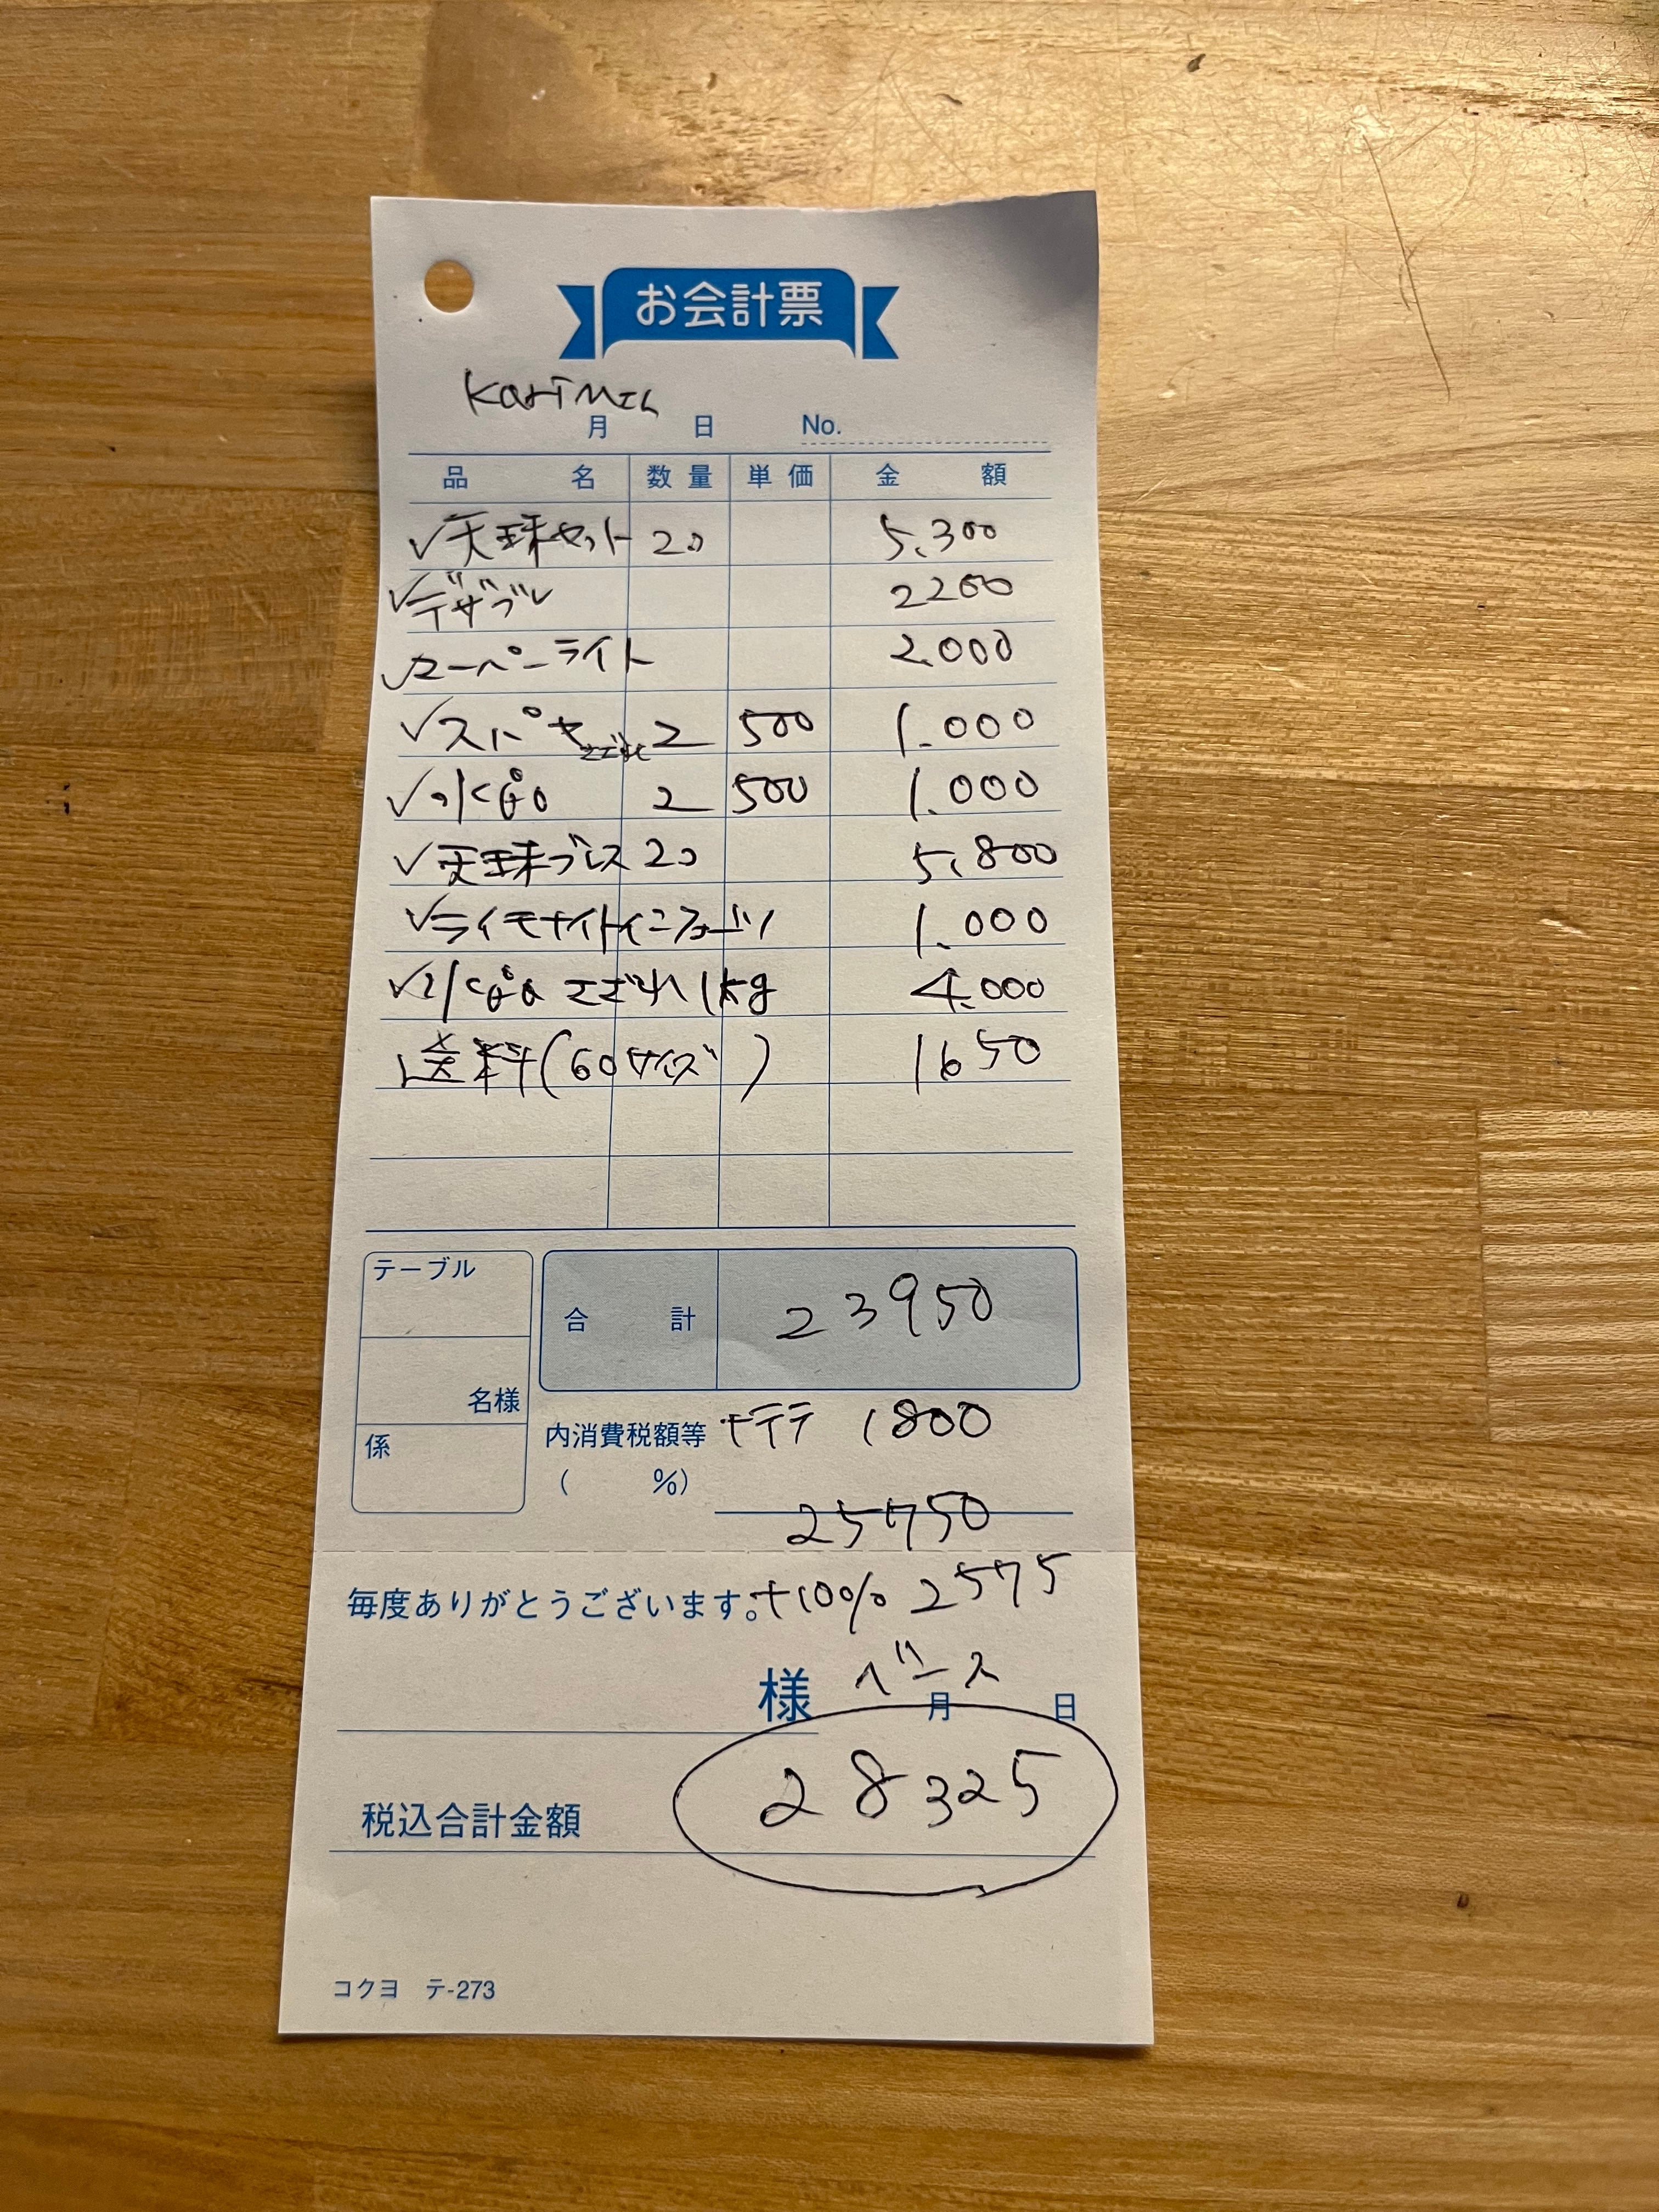 お会計票
月 日 No.
品名 数量 単価 金額
✓天珠セット 20 5.300
✓デザブレ 2200
✓ローペーライト 2.000
✓スパセ さざれ 2 500 1.000
✓水晶 2 500 1.000
✓天珠ブレス 20 5.800
✓ライモナイトインクォーツ 1.000
✓水晶さざれ1kg 4.000
送料(60サイズ) 1650
テーブル
名様
係
合計 23950
内消費税額等 1800
( %)
25750
毎度ありがとうございます。 +10% 2575
様 ベース
月 日
税込合計金額 28325
コクヨ テ-273